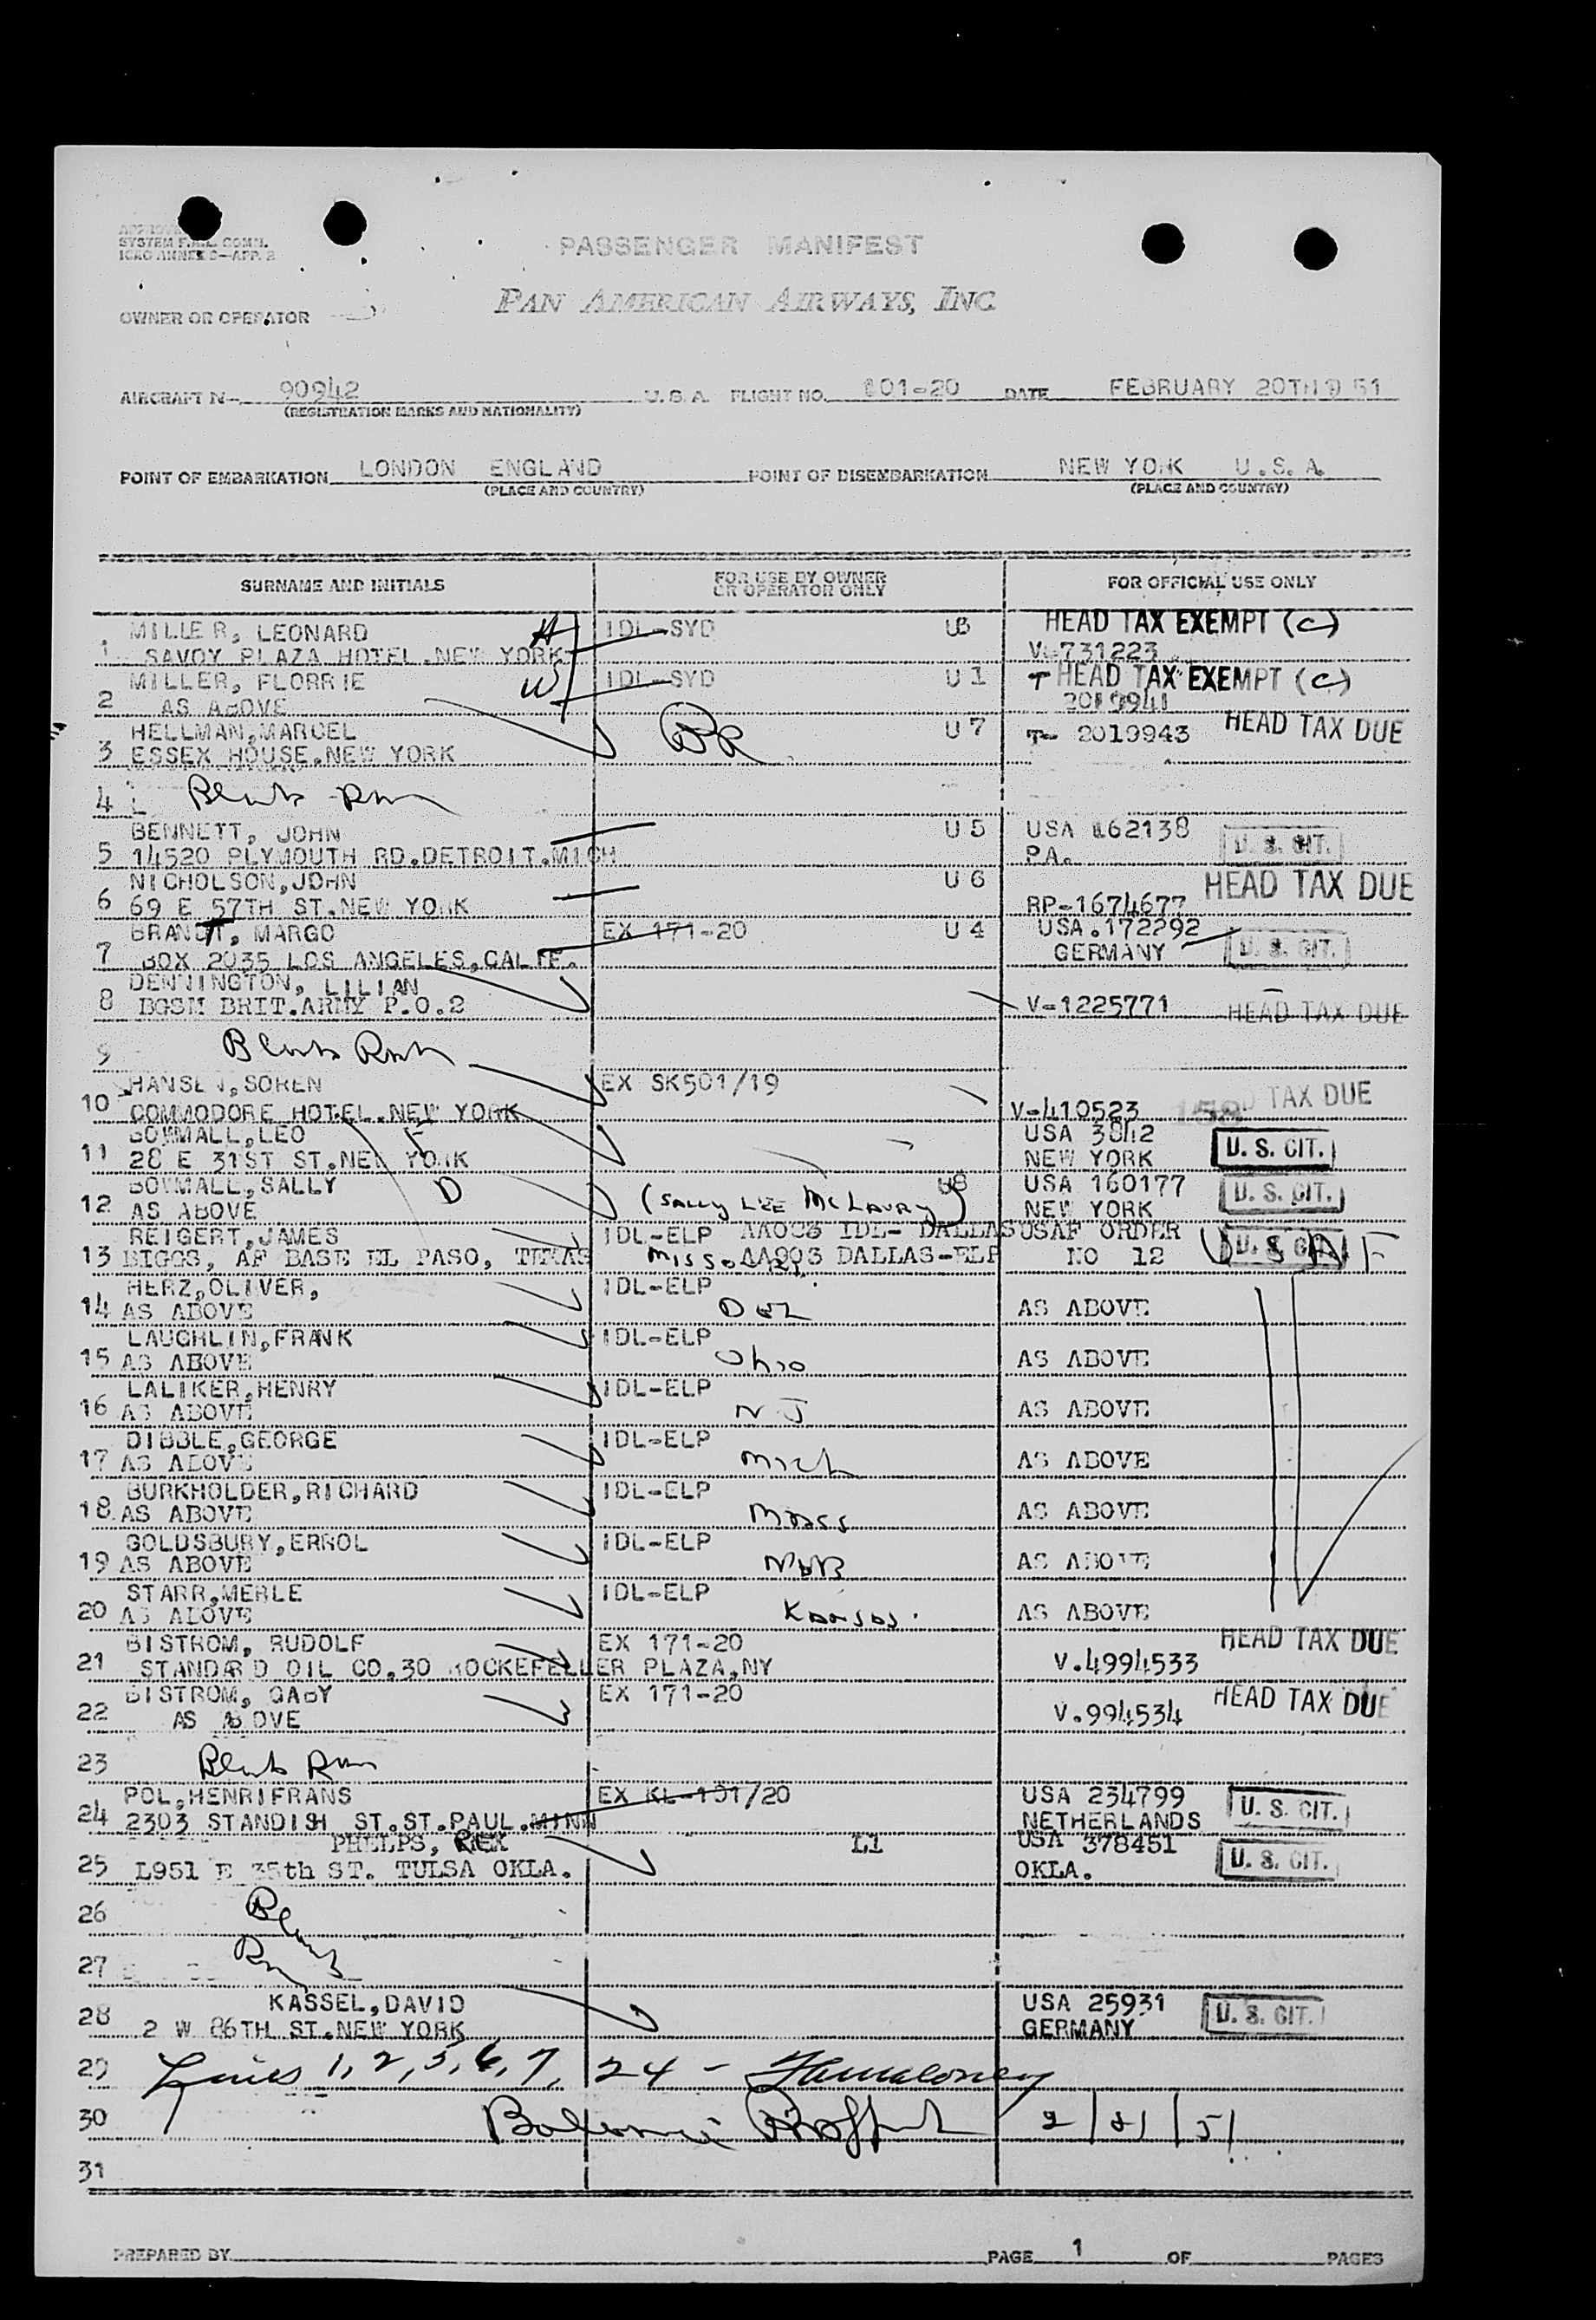 APPROVED
SYSTEM F.A.L. COMM.
ICAO ANNEX 9-APP. 3
PASSENGER MANIFEST
PAN AMERICAN AIRWAYS, INC
OWNER OR OPERATOR
AIRCRAFT N- 90942 U. S. A. FLIGHT NO. 101-20 DATE FEBRUARY 20TH19 51
(REGISTRATION MARKS AND NATIONALITY)
POINT OF EMBARKATION LONDON ENGLAND POINT OF DISEMBARKATION NEW YORK U.S.A.
(PLACE AND COUNTRY) (PLACE AND COUNTRY)
SURNAME AND INITIALS FOR USE BY OWNER OR OPERATOR ONLY FOR OFFICIAL USE ONLY
MILLER, LEONARD H IDL-SYD U3 HEAD TAX EXEMPT (C)
1 SAVOY PLAZA HOTEL.NEW YORK V-731223
MILLER, FLORRIE W IDL-SYD U 1 T HEAD TAX EXEMPT (C)
2 AS ABOVE 2019941
HELLMAN,MARCEL U 7 T- 2019943 HEAD TAX DUE
3 ESSEX HOUSE.NEW YORK
4
BENNETT, JOHN U 5 USA 162138 U. S. CIT.
5 14520 PLYMOUTH RD.DETROIT.MICH PA.
NICHOLSON,JOHN U 6 HEAD TAX DUE
6 69 E 57TH ST.NEW YORK RP-1674677
BRANDT, MARGO EX 171-20 U 4 USA.172292
7 BOX 2035 LOS ANGELES,CALIF. GERMANY U. S. CIT.
DENNINGTON, LILIAN
8 BGSM BRIT.ARMY P.O.2 V-1225771 HEAD TAX DUE
9
HANSEN,SOREN EX SK501/19 TAX DUE
10 COMMODORE HOTEL.NEW YORK V-410523
BOWMALL,LEO F USA 3842
11 28 E 31ST ST.NEW YORK NEW YORK U. S. CIT.
BOWMALL,SALLY D U8 USA 160177
12 AS ABOVE (SALLY LEE McLAURY) NEW YORK U. S. CIT.
REIGERT,JAMES IDL-ELP AA003 IDL- DALLAS USAF ORDER
13 BIGGS, AF BASE EL PASO, TEXAS AA903 DALLAS-ELP NO 12 U. S. CIT.
HERZ,OLIVER, IDL-ELP
14 AS ABOVE AS ABOVE
LAUGHLIN,FRANK IDL-ELP
15 AS ABOVE Ohio AS ABOVE
LALIKER,HENRY IDL-ELP
16 AS ABOVE N J AS ABOVE
DIBBLE,GEORGE IDL-ELP
17 AS ABOVE Mich AS ABOVE
BURKHOLDER,RICHARD IDL-ELP
18 AS ABOVE Mass AS ABOVE
GOLDSBURY,ERROL IDL-ELP
19 AS ABOVE Neb AS ABOVE
STARR,MERLE IDL-ELP
20 AS ABOVE Kansas. AS ABOVE
BISTROM, RUDOLF EX 171-20 HEAD TAX DUE
21 STANDARD OIL CO,30 ROCKEFELLER PLAZA,NY V.4994533
BISTROM, GABY EX 171-20 HEAD TAX DUE
22 AS ABOVE V.994534
23
POL,HENRIFRANS EX KL-101/20 USA 234799
24 2303 STANDISH ST.ST.PAUL.MINN NETHERLANDS U. S. CIT.
PHELPS, REX L1 USA 378451
25 L951 E 35th ST. TULSA OKLA. OKLA. U. S. CIT.
26
27
KASSEL,DAVID USA 25931
28 2 W 86TH ST.NEW YORK GERMANY U. S. CIT.
29 Lines 1, 2, 5, 6, 7, 24 -
30 2/21/51
31
PREPARED BY PAGE 1 OF PAGES